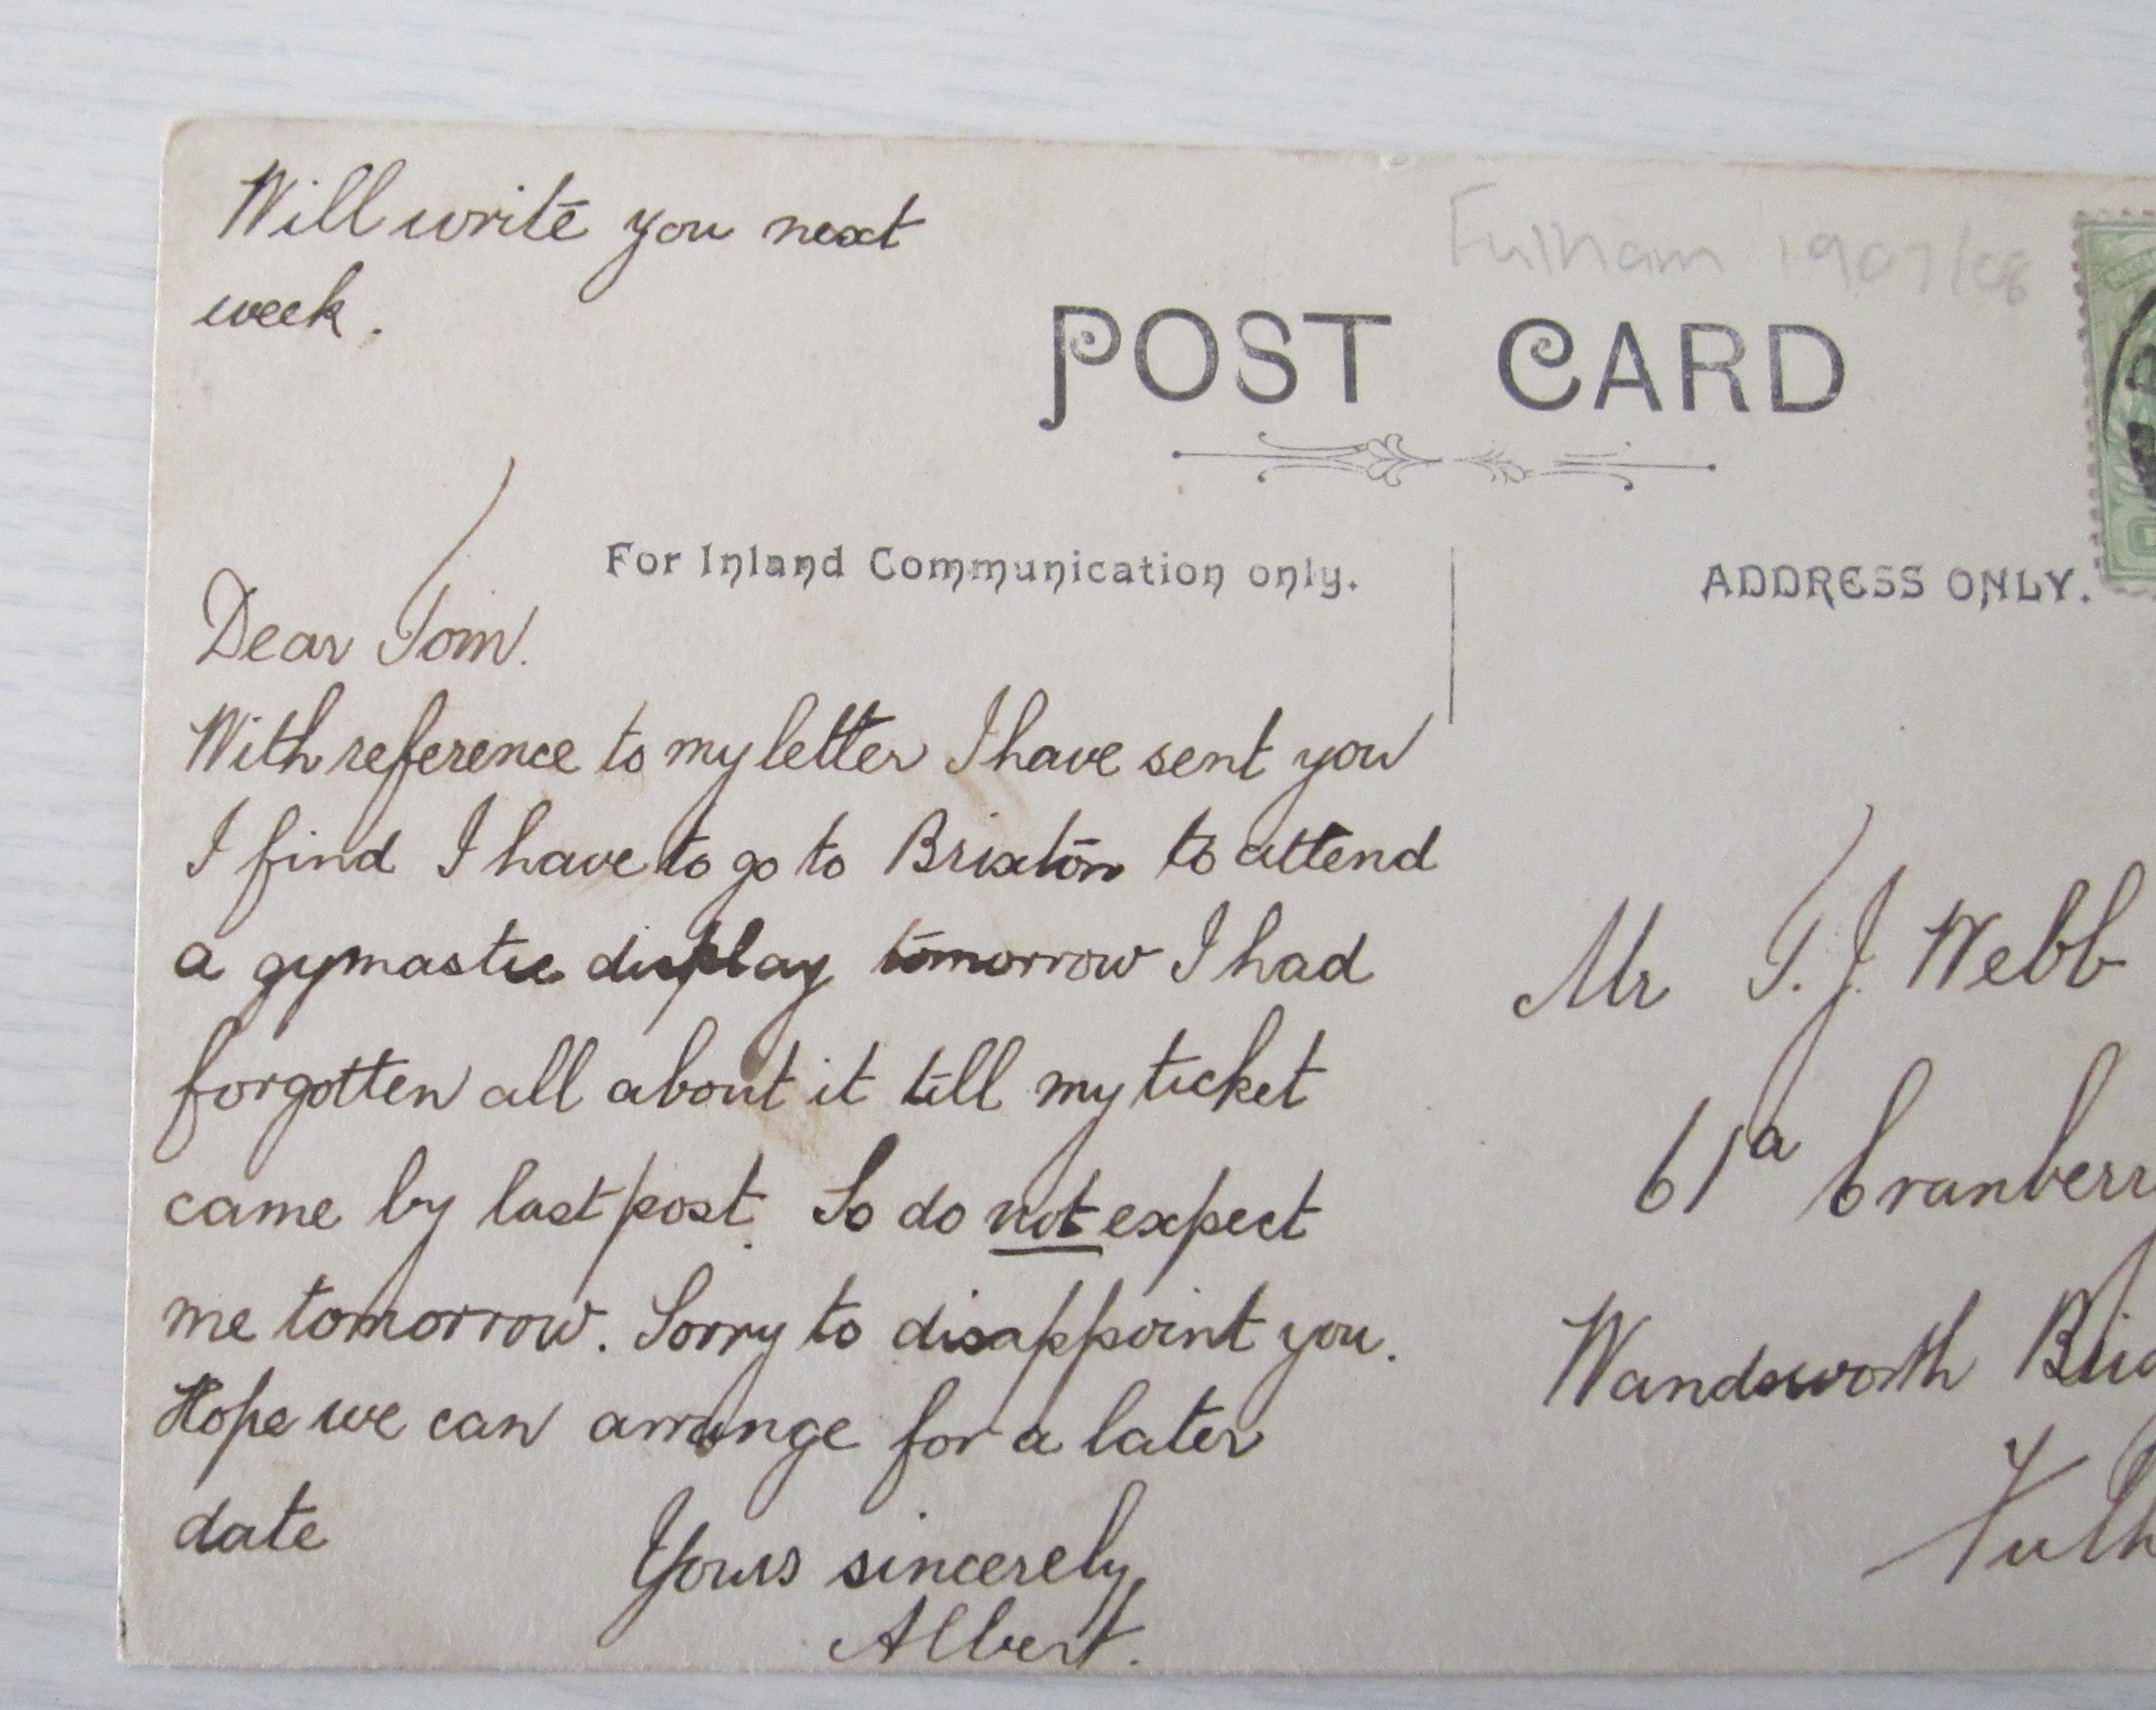 Will write you next
week.
Fulham 1907/08
POST CARD
For Inland Communication only.
ADDRESS ONLY.
Dear Tom.
With reference to my letter I have sent you
I find I have to go to Brixton to attend
a gymastic display tomorrow I had
forgotten all about it till my ticket
came by last post. So do not expect
me tomorrow. Sorry to disappoint you.
Hope we can arrange for a later
date
Yours sincerely,
Albert.
Mr T. J. Webb
61a Cranberr
Wandsworth Brid
Fulh